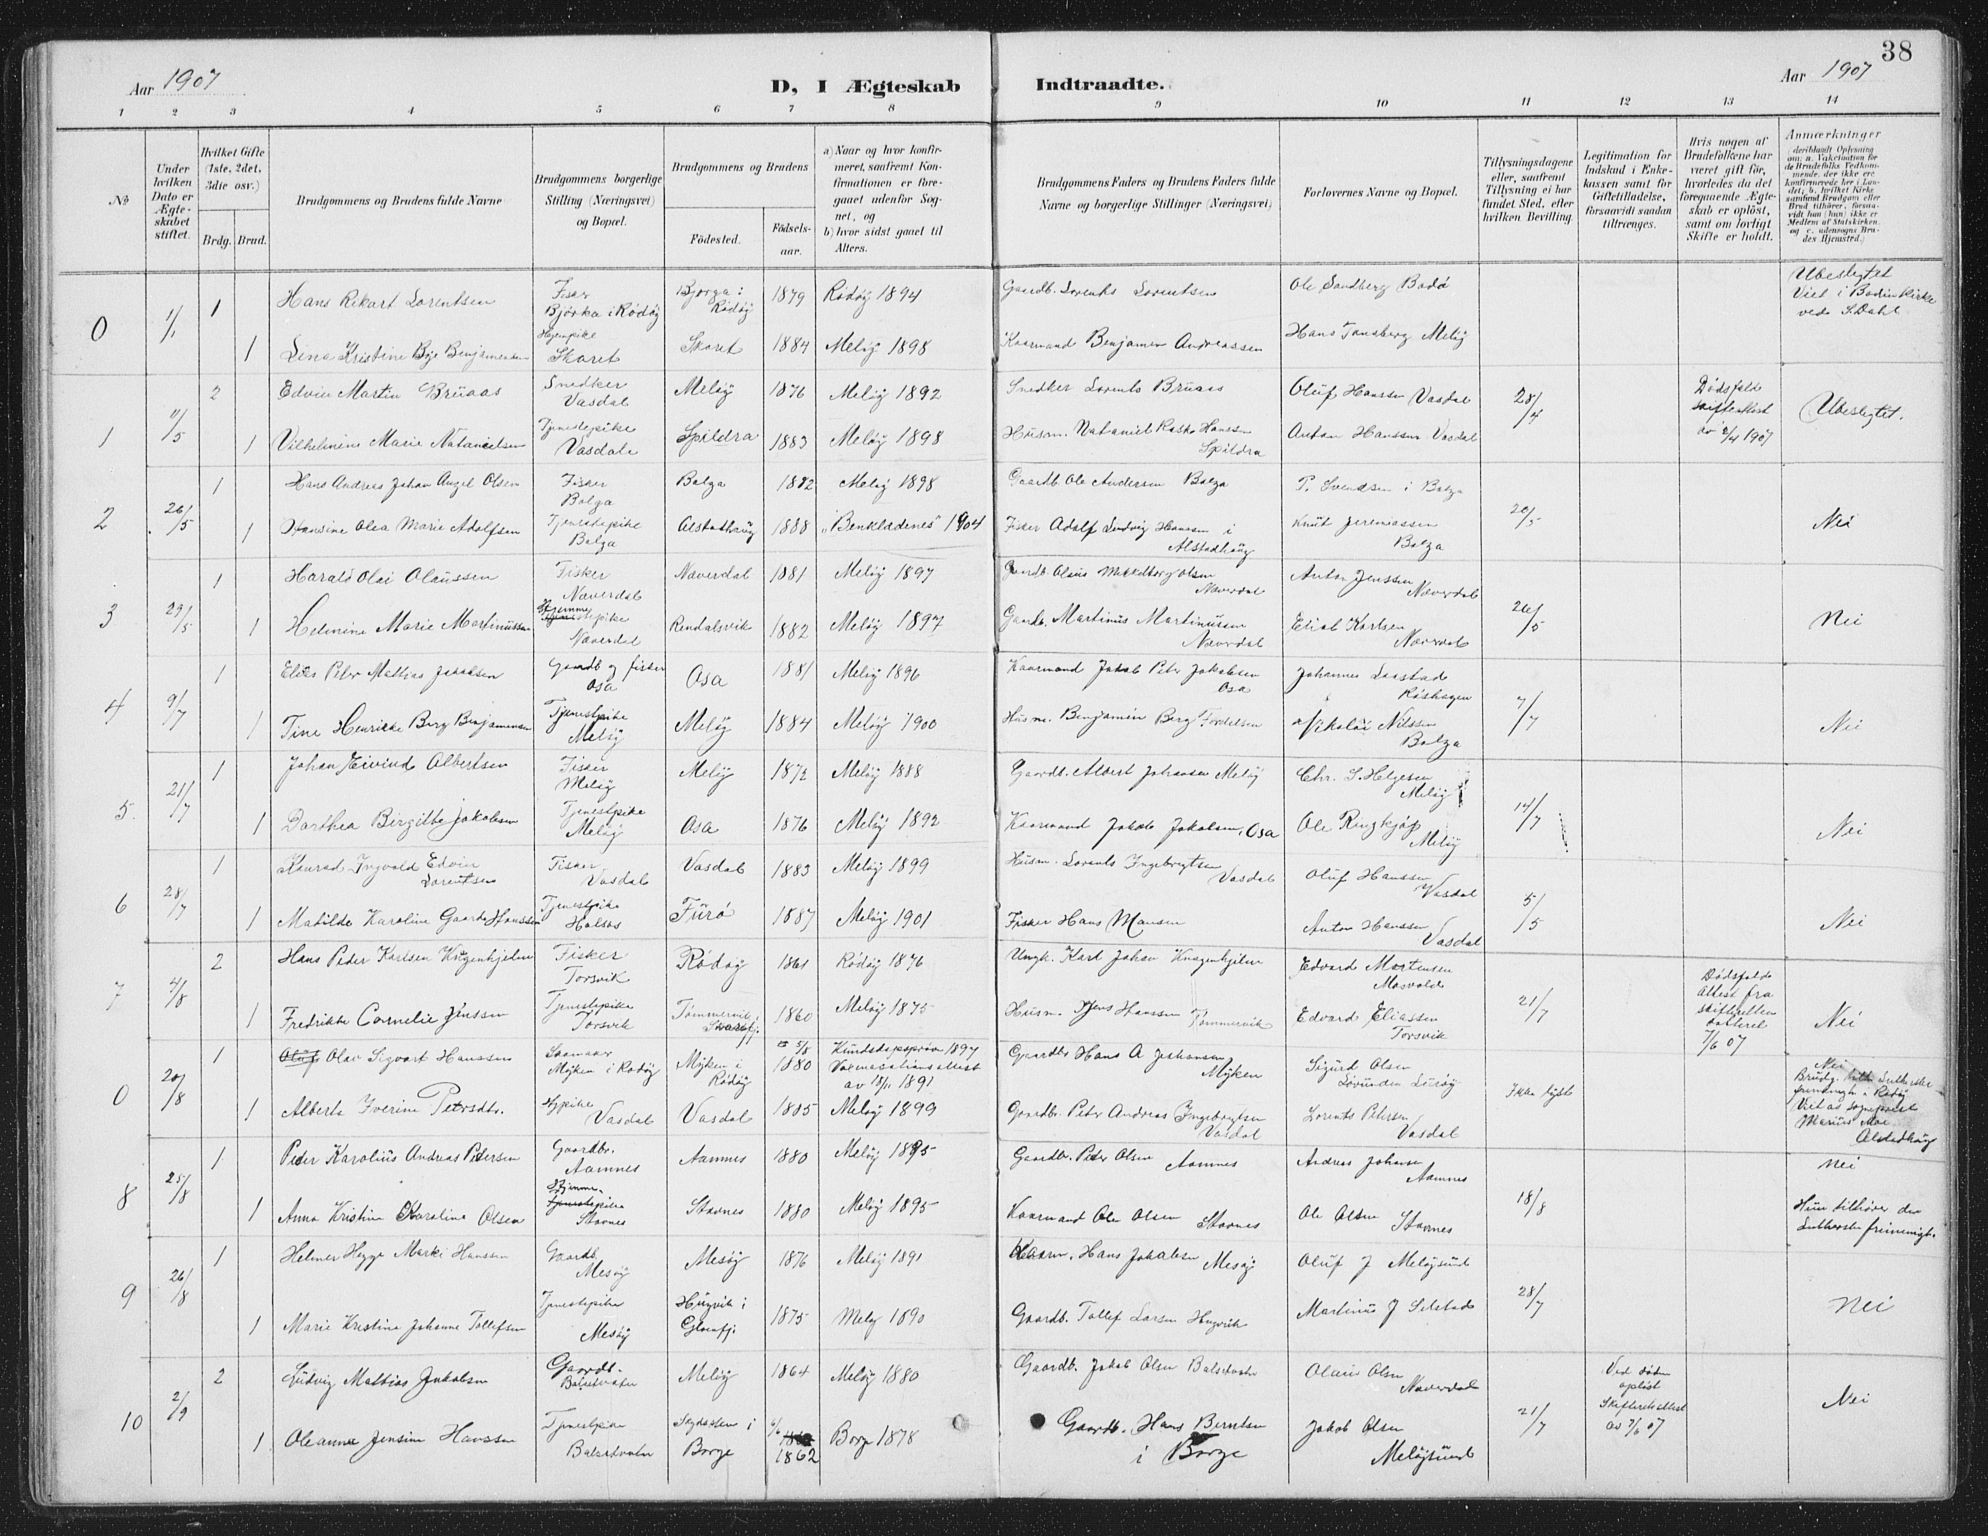 38
Aar 1907
D, I Ægteskab Indtraadte.
Aar 1907
1 2 3 4 5 6 7 8 9 10 11 12 13 14
No
Under hvilken Dato er Ægteskabet stiftet.
Hvilket Gifte (1ste, 2det, 3die osv.)
Brdg. Brud.
Brudgommens og Brudens fulde Navne
Brudgommens borgerlige Stilling (Næringsvei) og Bopæl.
Brudgommens og Brudens
Fødested.
Fødselsaar.
a) Naar og hvor konfirmeret, saafremt Konfirmationen er foregaaet udenfor Sognet, og
b) hvor sidst gaaet til Alters.
Brudgommens Faders og Brudens Faders fulde Navne og borgerlige Stillinger (Næringsvei)
Forlovernes Navne og Bopæl.
Tillysningsdagene eller, saafremt Tillysning ei har fundet Sted, efter hvilken Bevilling.
Legitimation for Indskud i Enkekassen samt for Giftetilladelse, forsaavidt saadan tiltrænges.
Hvis nogen af Brudefolkene har været gift før, hvorledes da det foregaaende Ægteskab er opløst, samt om lovligt Skifte er holdt.
Anmærkninger (deriblandt Oplysning om: a. Vakcination for de Brudefolks Vedkommende, der ikke ere konfirmerede her i Landet; b. hvilket Kirkesamfund Brudgom eller Brud tilhører, forsaavidt han (hun) ikke er Medlem af Statskirken, og c. udensogns Brudes Hjemstrd.)
0 1/1 1 Hans Rikart Lorentsen Fisker Bjørka i Rødøy Bjørga i Rødøy 1879 Rødøy 1894 Gaardb. Lorents Lorentsen Ole Sandberg Bodø Ubeslegtet Viet i Bodin kirke ved S. Dahl
1 Lena Kristine Boje Benjaminsen Hjempike Skaret Skaret 1884 Meløy 1898 Kaarmand Benjamin Andreassen Hans Tønsberg Meløy
1 11/5 2 Edvin Martin Bruaas Snedker Vasdal Meløy 1876 Meløy 1892 Snedker Lorents Bruaas Oluf Hanssen Vasdal 28/4 Dødsfalds skifteattest av 2/4 1907 Ubeslegtet.
1 Vilhelmine Marie Natanaelsen Tjenestepike Vasdale Spildra 1883 Meløy 1898 Husm. Nathaniel Rasks Hanssen Spildra Anton Hanssen Vasdal
2 26/5 1 Hans Andreas Johan Angel Olsen Fisker Bolga Bolga 1882 Meløy 1898 Gaardb. Ole Andersen Bolga P. Svendsen i Bolga 20/5 Nei
1 Hansine Olea Marie Adolfsen Tjenestepike Bolga Alstadhaug 1888 "Benkladenes" 1904 Fisker Adolf Ludvig Hanssen i Alstadhaug Knut Jeremiassen Bolga
3 29/5 1 Harald Olai Olaussen Fisker Næverdal Næverdal 1881 Meløy 1897 Gaardb. Olaus Mikkelborg Olsen Næverdal Anton Jenssen Næverdal 26/5 Nei
1 Helmine Marie Martinussen Hjemmepike Næverdal Rendalsvik 1882 Meløy 1897 Gaardb. Martinus Martinussen Næverdal Eliab Karlsen Næverdal
4 9/7 1 Elias Peter Mathias Jakobsen Gaardb og fisker Osa Osa 1881 Meløy 1896 Kaarmand Jakob Peter Jakobsen Osa Johannes Laastad Røshagen 7/7 Nei
1 Tine Henrikke Berg Benjaminsen Tjenestepike Meløy Meløy 1884 Meløy 1900 Husm. Benjamin Berg Tordelsen Nikolai Nilssen Bolga
5. 21/7 1 Johan Eivind Albertsen Fisker Meløy Meløy 1872 Meløy 1888 Gaardb. Albert Johansen Meløy Chr. S. Helgesen Meløy 14/7 Nei
1 Dorthea Birgitte Jakobsen Tjenestepike Meløy Osa 1876 Meløy 1892 Kaarmand Jakob Jakobsen, Osa Ole Ringkjøp Meløy
6 28/7 1 Konrad Ingvald Edvin Lorentsen Fisker Vasdal Vasdal 1883 Meløy 1899 Husm. Lorents Ingebregtsen Vasdal Oluf Hanssen Vasdal 5/5 Nei
1 Matilde Karoline Gaarde Hanssen Tjenestepike Halsos Furø 1887 Meløy 1901 Fisker Hans Monsen Anton Hanssen Vasdal
7 4/8 2 Hans Peder Karlsen Knagenhjelm Fisker Torsvik Rødøy 1861 Rødøy 1876 Ungk. Karl Johan Knagenhjelm Edvard Mortensen Mosvold 21/7 Dødsfalds attest fra skifteretten datteret 7/6 07 Nei
1 Fredrikke Cornelie Jenssen Tjenestepike Torsvik Tømmervik i Skarsfj. 1860 Meløy 1875 Husm. Jens Hanssen Tømmervik Edvard Eliassen Torsvik
0 20/8 1 Oluf Olav Sigvart Hanssen Myken i Rødøy Myken i Rødøy 5/8 1880 Kundskapsprøve 1897 Vaksinationsattest av 18/11 1891 Gaardb. Hans A Johansen Myken Sigurd Olsen Lovunden Lurøy Ikke lyst Nei
1 Alberte Iverine Petersdtr. Hjpike Vasdal Vasdal 1885 Meløy 1899 Gaardbr. Peter Andreas Ingebregtsen Vasdal Lorents Petersen Vasdal Viet av sogneprest Marius Moe Alstadhaug
8 25/8 1 Peder Karolius Andreas Pedersen Gaardbr. Aamnes Aamnes 1880 Meløy 1895 Gaardbr. Peder Olsen Aamnes Andreas Johansen Aamnes 18/8 Nei
1 Anna Kristine Karoline Olsen Hjemmepike Støvnes Støvnes 1880 Meløy 1895 Kaarmand Ole Olsen Støvnes Ole Olsen Støvnes Hun tilhører den Lutherske frimenigh.
9 26/8 1 Helmer Hegge Marki Hanssen Gaardb. Mesøy Mesøy 1876 Meløy 1891 Kaarm. Hans Jakobsen Mesøy Oluf J Meløysund 28/7 Nei
1 Marie Kristine Johanne Tollefsen Tjenestepike Mesøy Haugvik i Glomfj. 1875 Meløy 1890 Gaardb. Tollef Larsen Haugvik Martinus J Selstad
10 2/9 2 Ludvig Mathias Jakobsen Gaardb. Balsetvatn Meløy 1864 Meløy 1880 Gaardb. Jakob Olsen Balsetvatn Olaus Olsen Næverdal 21/7 Ved døden opløst Skifteretsattest av 7/6 07 Nei
1 Oleanna Jensine Hanssen Tjenestepike Balsetvatn i Borge 1862 Borge 1878 Gaardb. Hans Berntsen i Borge Jakob Olsen Meløysund